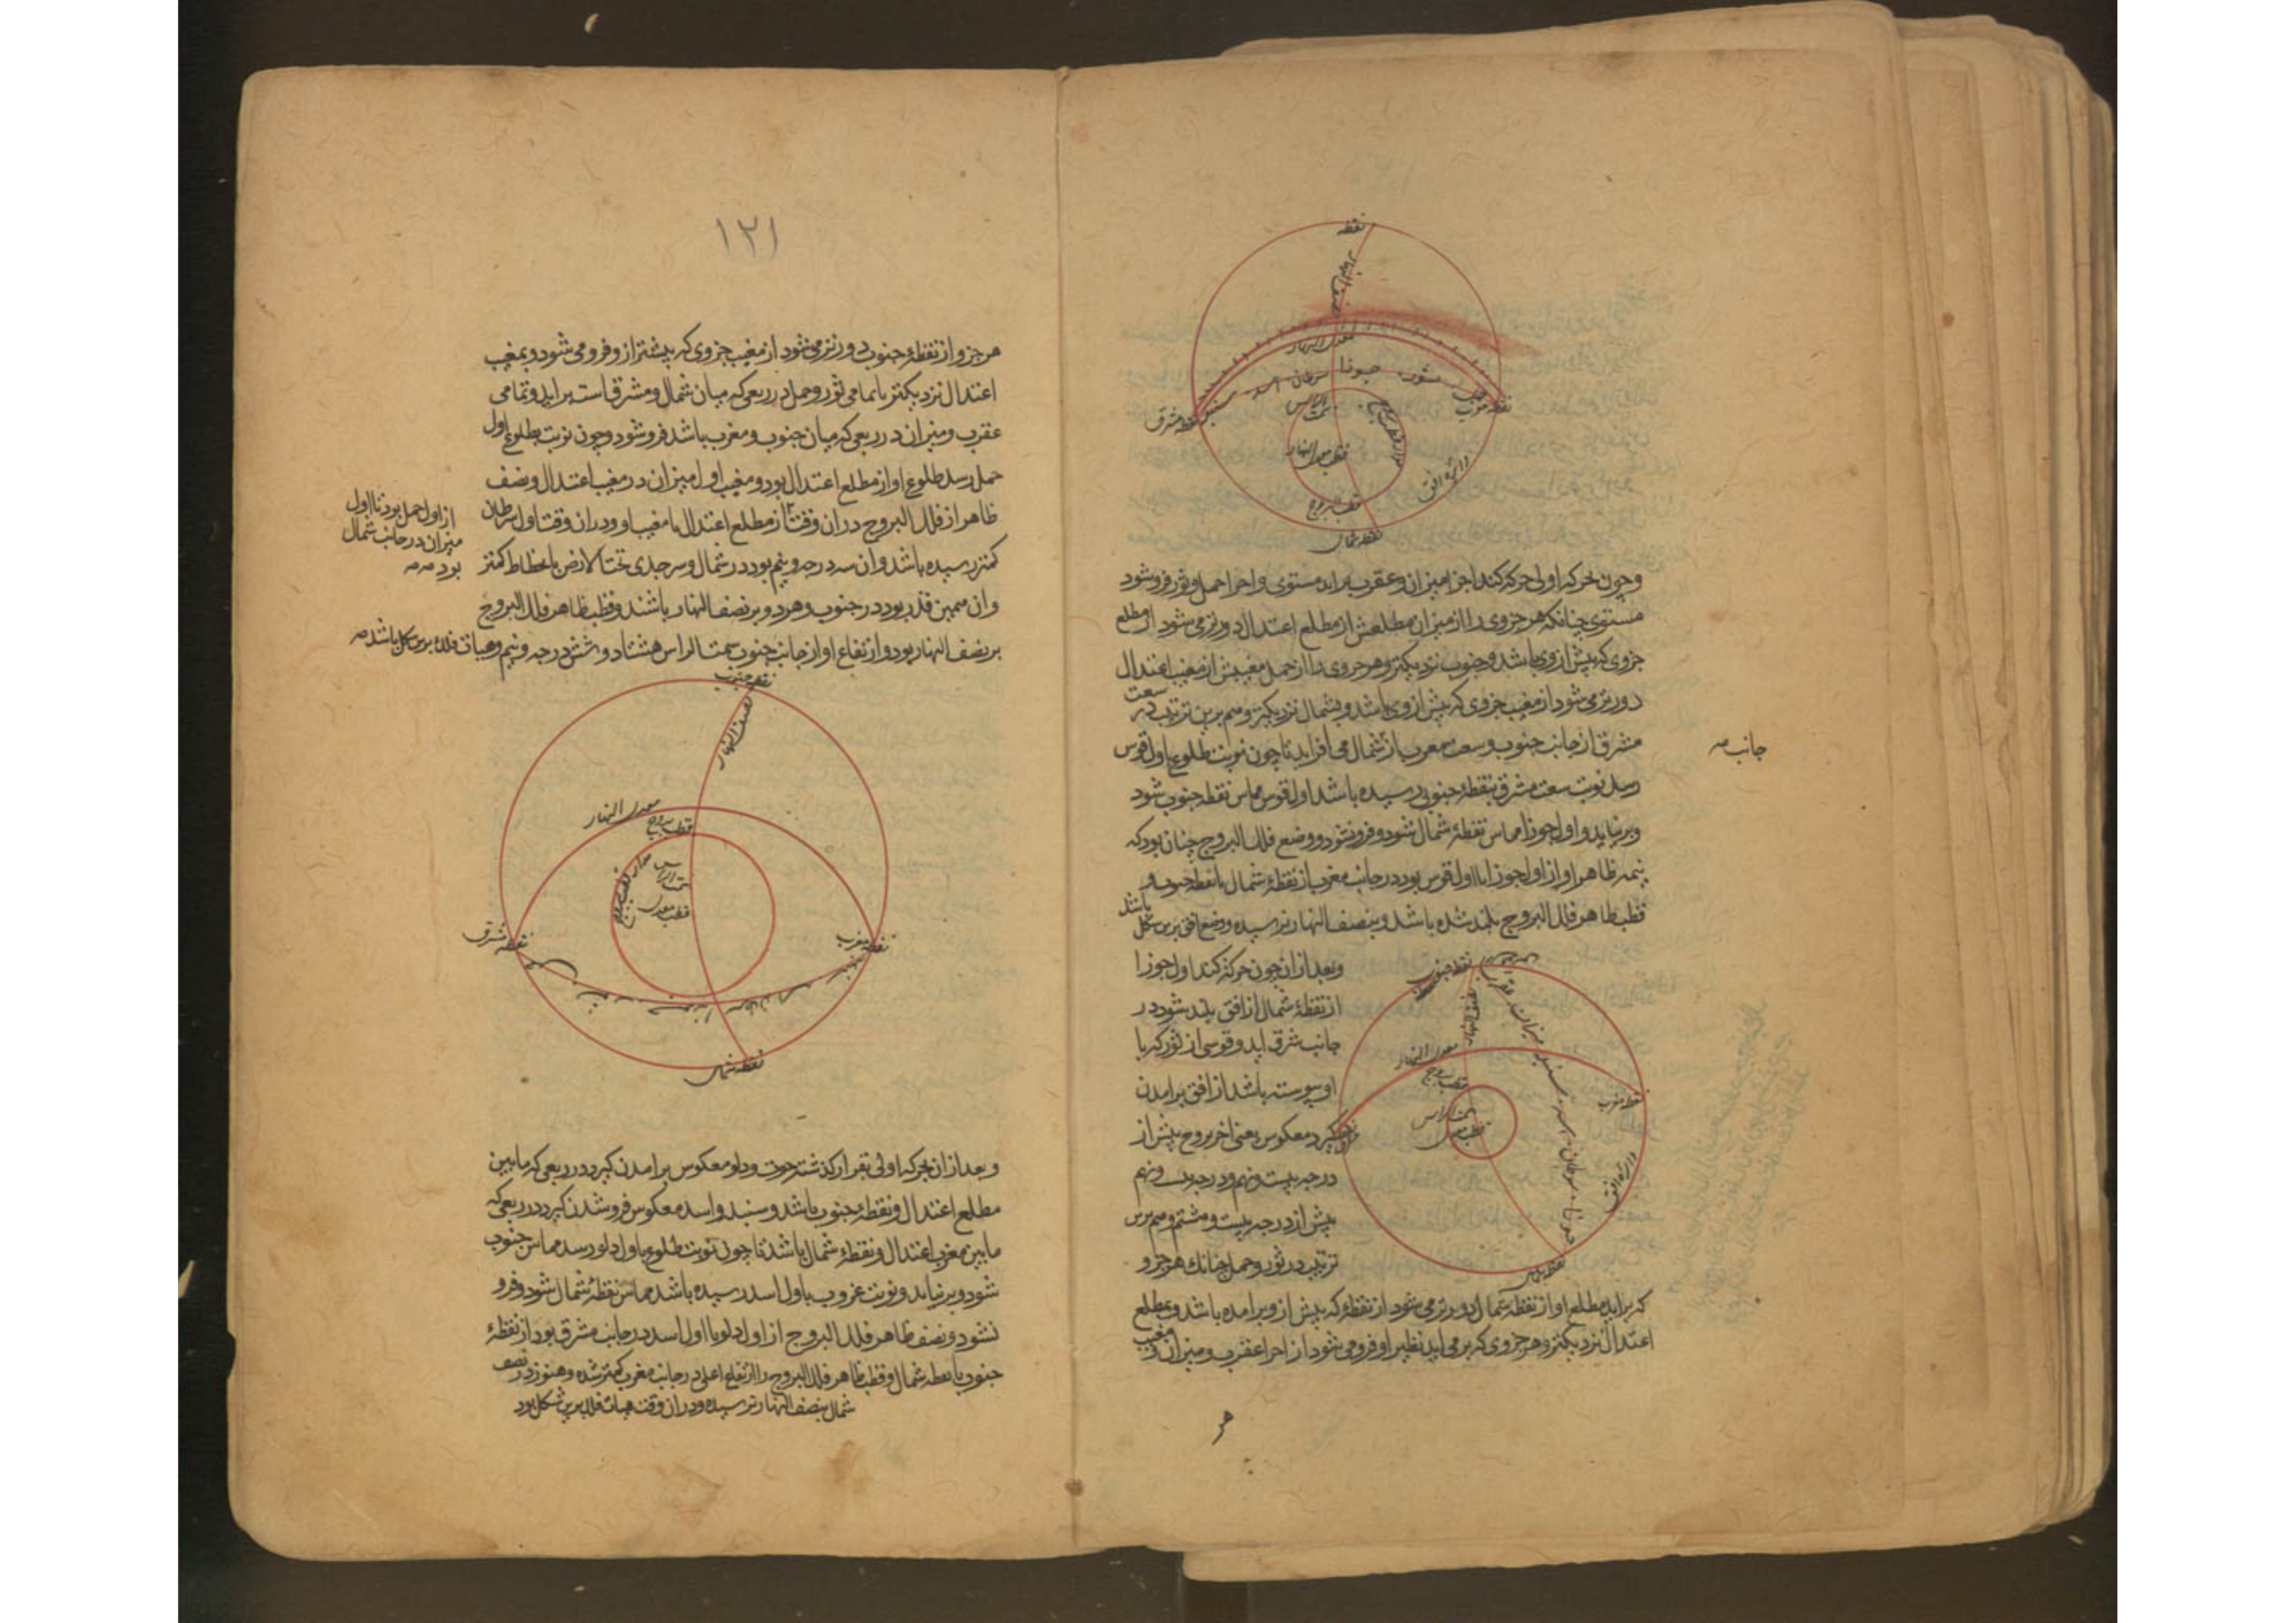 نقطه
نصف النهار
معدل النهار
حمل ثور جوزا سرطان اسد سنبله
نقطه مغرب
نقطه مشرق
سمت الراس
مدار قطب بروج
قطب معدل النهار
دائره افق
قطب البروج
نقطه شمال
و چون بحرکه اولی حرکه کند اجزا میزان و عقرب براید مستوی و اجزا حمل و ثور فروشود
مستوی چنانکه هر جزوی را از میزان مطلعش از مطلع اعتدال دورتر می شود از مطلع
جزوی که پیش از وی باشد و بجنوب نزدیکتر و هر جزوی را از حمل مغیبش از مغیب اعتدال
دورتر می شود از مغیب جزوی که پیش از وی باشد و بشمال نزدیکتر و هم برین ترتیب در سعت
مشرق از جانب جنوب و سعت مغرب از شمال می افزاید تا چون نوبت طلوع باول قوس
جانب صه
رسد نوبت سعت مشرق بنقطهٔ جنوب رسیده باشد اول قوس مماس نقطه جنوب شود
و برنیاید و اول جوزا مماس نقطهٔ شمال شود و فرونشود و وضع فلک البروج چنان بود که
نیمه ظاهر او از اول جوزا تا اول قوس بود در جانب مغرب از نقطهٔ شمال تا نقطه جنوب و
قطب ظاهر فلک البروج بلند شده باشد و بنصف النهار نرسیده و وضع افق برین شکل باشد
و بعد از ان چون حرکه کند اول جوزا
از نقطهٔ شمال از افق بلند شود در
جانب شرق اید و قوسی از ثور که با
او پیوسته باشد از افق برامدن
گیرد معکوس یعنی اخر بروج پیش از
درجه بیست و نهم و درجه بیست و نهم
پیش از درجه بیست و هشتم و هم برین
ترتیب در ثور و حمل چنانک هر جزو
نقطه جنوب
عقرب میزان سنبله اسد سرطان جوزا
نصف النهار
معدل النهار
قطب بروج
سمت الراس
قطب معدل
نقطه مغرب
دائره افق
که براید مطلع او از نقطه شمال دورتر می شود از نقطهٔ که پیش از و برامده باشد و بمطلع
اعتدال نزدیکتر و هر جزوی که برمی اید نظیر او فرو می شود از اجزا عقرب و میزان و مغیب
هر
١٢١
هر جزو از نقطهٔ جنوب دورتر می شود از مغیب جزوی که پیشتر از و فرو می شود و بمغیب
اعتدال نزدیکتر تا تمامی ثور و حمل در ربعی که میان شمال و مشرق است براید و تمامی
عقرب و میزان در ربعی که میان جنوب و مغرب باشد فروشود و چون نوبت بطلوع اول
حمل رسد طلوع او از مطلع اعتدال بود و مغیب اول میزان در مغیب اعتدال و نصف
ظاهر از فلک البروج در ان وقت از مطلع اعتدال تا مغیب او و در ان وقت اول سرطان
از اول حمل بود تا اول
میزان در جانب شمال
بود صه صه
کمتر رسیده باشد و ان سه درجه و نیم بود در شمال و سر جدی تحت الارض بانحطاط کمتر
و ان همین قدر بود در جنوب و هر دو بر نصف النهار باشند و قطب ظاهر فلک البروج
بر نصف النهار بود و ارتفاع او از جانب جنوب سمت الراس هشتاد و شش درجه و نیم و هیات فلک برین شکل باشد صه
نقطه جنوب
نصف النهار
معدل النهار
قطب بروج
مدار قطب بروج
سمت الراس
قطب معدل
نقطه مشرق
نقطه مغرب
نقطه شمال
و بعد از ان بحرکه اولی بقرار گذشته حوت و دلو معکوس برامدن گیرد در ربعی که مابین
مطلع اعتدال و نقطهٔ جنوب باشد و سنبله و اسد معکوس فروشدن گیرد در ربعی که
مابین مغرب اعتدال و نقطهٔ شمال باشد تا چون نوبت طلوع باول دلو رسد مماس جنوب
شود و برنیاید و نوبت غروب باول اسد رسیده باشد مماس نقطهٔ شمال شود و فرو
نشود و نصف ظاهر فلک البروج از اول دلو تا اول اسد در جانب مشرق بود از نقطهٔ
جنوب تا نقطه شمال و قطب ظاهر فلک البروج را ارتفاع اعلی در جانب مغرب کمتر شده و هنوز در نصف
شمال بنصف النهار نرسیده و در ان وقت هیات فلک برین شکل بود